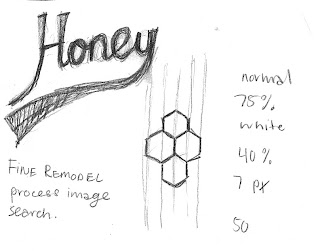 Honey
FINE REMODEL
process image
search.
normal
75%
white
40%
7 px
50